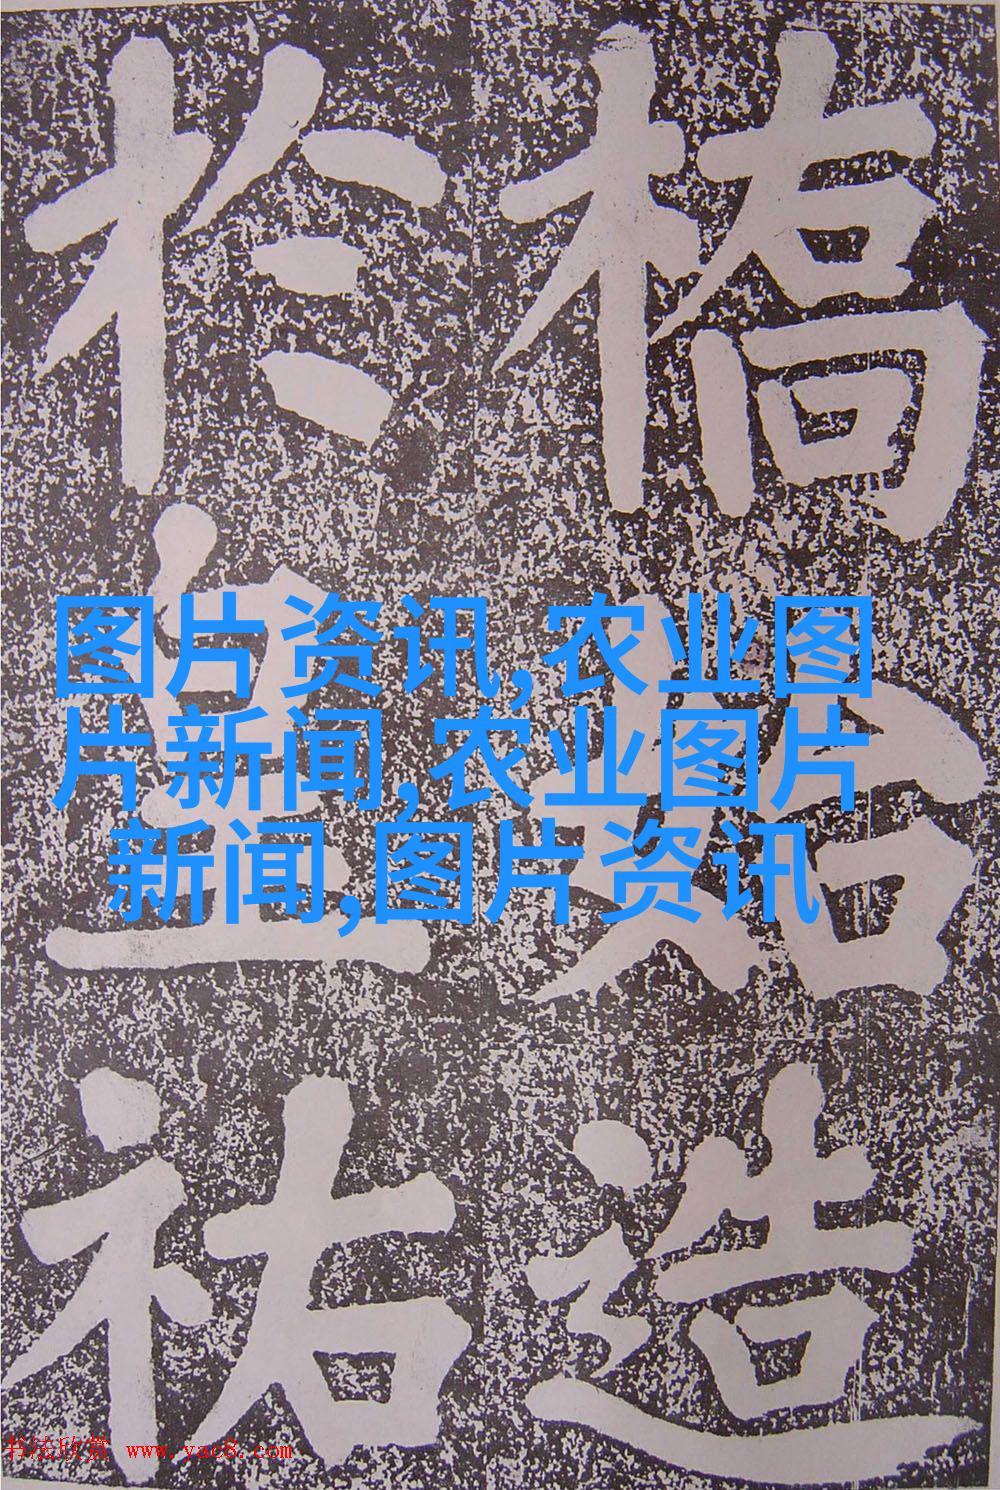 橋始造
於皇祐
图片资讯,农业图
片新闻,农业图片
新闻,图片资讯
书法欣赏 www.yac8.com